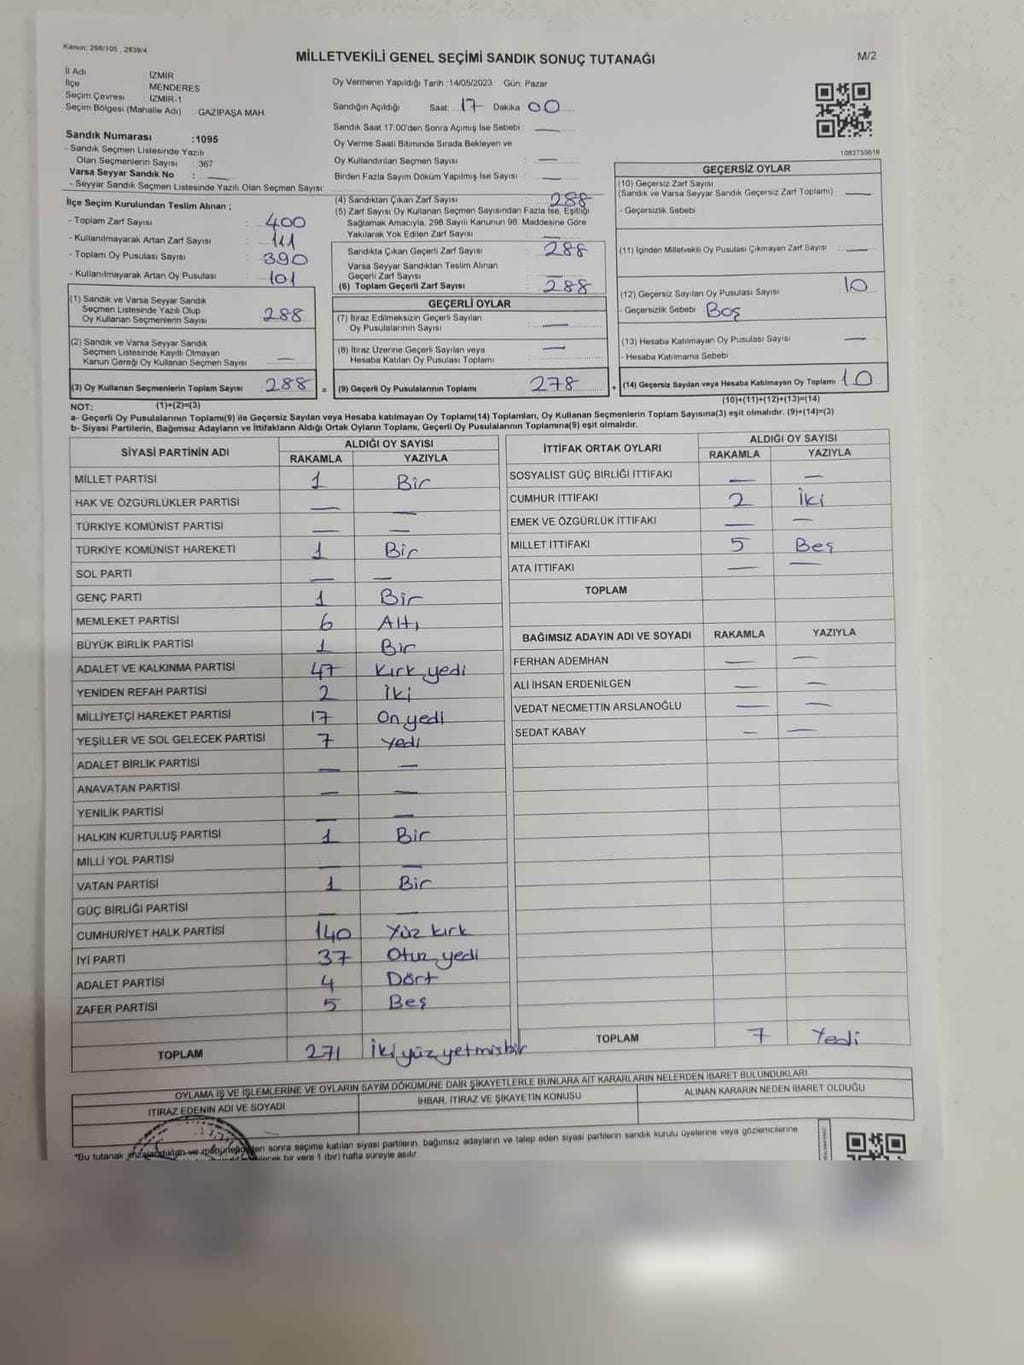 Kanun: 298/105 , 2839/4
MİLLETVEKİLİ GENEL SEÇİMİ SANDIK SONUÇ TUTANAĞI
M/2
İl Adı : İZMİR
İlçe : MENDERES
Seçim Çevresi : İZMİR-1
Seçim Bölgesi (Mahalle Adı) : GAZİPAŞA MAH
Oy Vermenin Yapıldığı Tarih :14/05/2023 Gün: Pazar
Sandığın Açıldığı Saat: 17 Dakika 00
Sandık Saat 17:00'den Sonra Açılmış İse Sebebi : —
Oy Verme Saati Bitiminde Sırada Bekleyen ve
Oy Kullandırılan Seçmen Sayısı : —
Birden Fazla Sayım Döküm Yapılmış İse Sayısı : —
1083755618
Sandık Numarası :1095
- Sandık Seçmen Listesinde Yazılı
Olan Seçmenlerin Sayısı : 367
Varsa Seyyar Sandık No : —
- Seyyar Sandık Seçmen Listesinde Yazılı Olan Seçmen Sayısı:
İlçe Seçim Kurulundan Teslim Alınan ;
- Toplam Zarf Sayısı : 400
- Kullanılmayarak Artan Zarf Sayısı : 111
- Toplam Oy Pusulası Sayısı : 390
- Kullanılmayarak Artan Oy Pusulası : 101
(1) Sandık ve Varsa Seyyar Sandık
Seçmen Listesinde Yazılı Olup
Oy Kullanan Seçmenlerin Sayısı 288
(2) Sandık ve Varsa Seyyar Sandık
Seçmen Listesinde Kayıtlı Olmayan
Kanun Gereği Oy Kullanan Seçmen Sayısı —
(3) Oy Kullanan Seçmenlerin Toplam Sayısı 288 =
(1)+(2)=(3)
(4) Sandıktan Çıkan Zarf Sayısı : 288
(5) Zarf Sayısı Oy Kullanan Seçmen Sayısından Fazla İse, Eşitliği
Sağlamak Amacıyla, 298 Sayılı Kanunun 98. Maddesine Göre
Yakılarak Yok Edilen Zarf Sayısı
Sandıkta Çıkan Geçerli Zarf Sayısı : 288
Varsa Seyyar Sandıktan Teslim Alınan
Geçerli Zarf Sayısı
(6) Toplam Geçerli Zarf Sayısı : 288
GEÇERLİ OYLAR
(7) İtiraz Edilmeksizin Geçerli Sayılan
Oy Pusulalarının Sayısı : —
(8) İtiraz Üzerine Geçerli Sayılan veya
Hesaba Katılan Oy Pusulası Toplamı : —
(9) Geçerli Oy Pusulalarının Toplamı : 278 +
GEÇERSİZ OYLAR
(10) Geçersiz Zarf Sayısı
(Sandık ve Varsa Seyyar Sandık Geçersiz Zarf Toplamı) : —
- Geçersizlik Sebebi :
(11) İçinden Milletvekili Oy Pusulası Çıkmayan Zarf Sayısı : —
(12) Geçersiz Sayılan Oy Pusulası Sayısı : 10
- Geçersizlik Sebebi : Boş
(13) Hesaba Katılmayan Oy Pusulası Sayısı : —
- Hesaba Katılmama Sebebi :
(14) Geçersiz Sayılan veya Hesaba Katılmayan Oy Toplamı : 10
(10)+(11)+(12)+(13)=(14)
NOT:
a- Geçerli Oy Pusulalarının Toplamı(9) ile Geçersiz Sayılan veya Hesaba katılmayan Oy Toplamı(14) Toplamları, Oy Kullanan Seçmenlerin Toplam Sayısına(3) eşit olmalıdır. (9)+(14)=(3)
b- Siyasi Partilerin, Bağımsız Adayların ve İttifakların Aldığı Ortak Oyların Toplamı, Geçerli Oy Pusulalarının Toplamına(9) eşit olmalıdır.
SİYASİ PARTİNİN ADI ALDIĞI OY SAYISI
RAKAMLA YAZIYLA
MİLLET PARTİSİ 1 Bir
HAK VE ÖZGÜRLÜKLER PARTİSİ — —
TÜRKİYE KOMÜNİST PARTİSİ — —
TÜRKİYE KOMÜNİST HAREKETİ 1 Bir
SOL PARTİ — —
GENÇ PARTİ 1 Bir
MEMLEKET PARTİSİ 6 Altı
BÜYÜK BİRLİK PARTİSİ 1 Bir
ADALET VE KALKINMA PARTİSİ 47 Kırk yedi
YENİDEN REFAH PARTİSİ 2 İki
MİLLİYETÇİ HAREKET PARTİSİ 17 On yedi
YEŞİLLER VE SOL GELECEK PARTİSİ 7 Yedi
ADALET BİRLİK PARTİSİ — —
ANAVATAN PARTİSİ — —
YENİLİK PARTİSİ — —
HALKIN KURTULUŞ PARTİSİ 1 Bir
MİLLİ YOL PARTİSİ — —
VATAN PARTİSİ 1 Bir
GÜÇ BİRLİĞİ PARTİSİ — —
CUMHURİYET HALK PARTİSİ 140 Yüz kırk
İYİ PARTİ 37 Otuz yedi
ADALET PARTİSİ 4 Dört
ZAFER PARTİSİ 5 Beş
TOPLAM 271 İki yüz yetmişbir
İTTİFAK ORTAK OYLARI ALDIĞI OY SAYISI
RAKAMLA YAZIYLA
SOSYALİST GÜÇ BİRLİĞİ İTTİFAKI — —
CUMHUR İTTİFAKI 2 İki
EMEK VE ÖZGÜRLÜK İTTİFAKI — —
MİLLET İTTİFAKI 5 Beş
ATA İTTİFAKI — —
TOPLAM
BAĞIMSIZ ADAYIN ADI VE SOYADI RAKAMLA YAZIYLA
FERHAN ADEMHAN — —
ALİ İHSAN ERDENİLGEN — —
VEDAT NECMETTİN ARSLANOĞLU — —
SEDAT KABAY — —
TOPLAM 7 Yedi
OYLAMA İŞ VE İŞLEMLERİNE VE OYLARIN SAYIM DÖKÜMÜNE DAİR ŞİKAYETLERLE BUNLARA AİT KARARLARIN NELERDEN İBARET BULUNDUKLARI
İTİRAZ EDENİN ADI VE SOYADI İHBAR, İTİRAZ VE ŞİKAYETİN KONUSU ALINAN KARARIN NEDEN İBARET OLDUĞU
*Bu tutanak imzalandıktan ve mühürlendikten sonra seçime katılan siyasi partilerin, bağımsız adayların ve talep eden siyasi partilerin sandık kurulu üyelerine veya gözlemcilerine
bir yere 1 (bir) hafta süreyle asılır